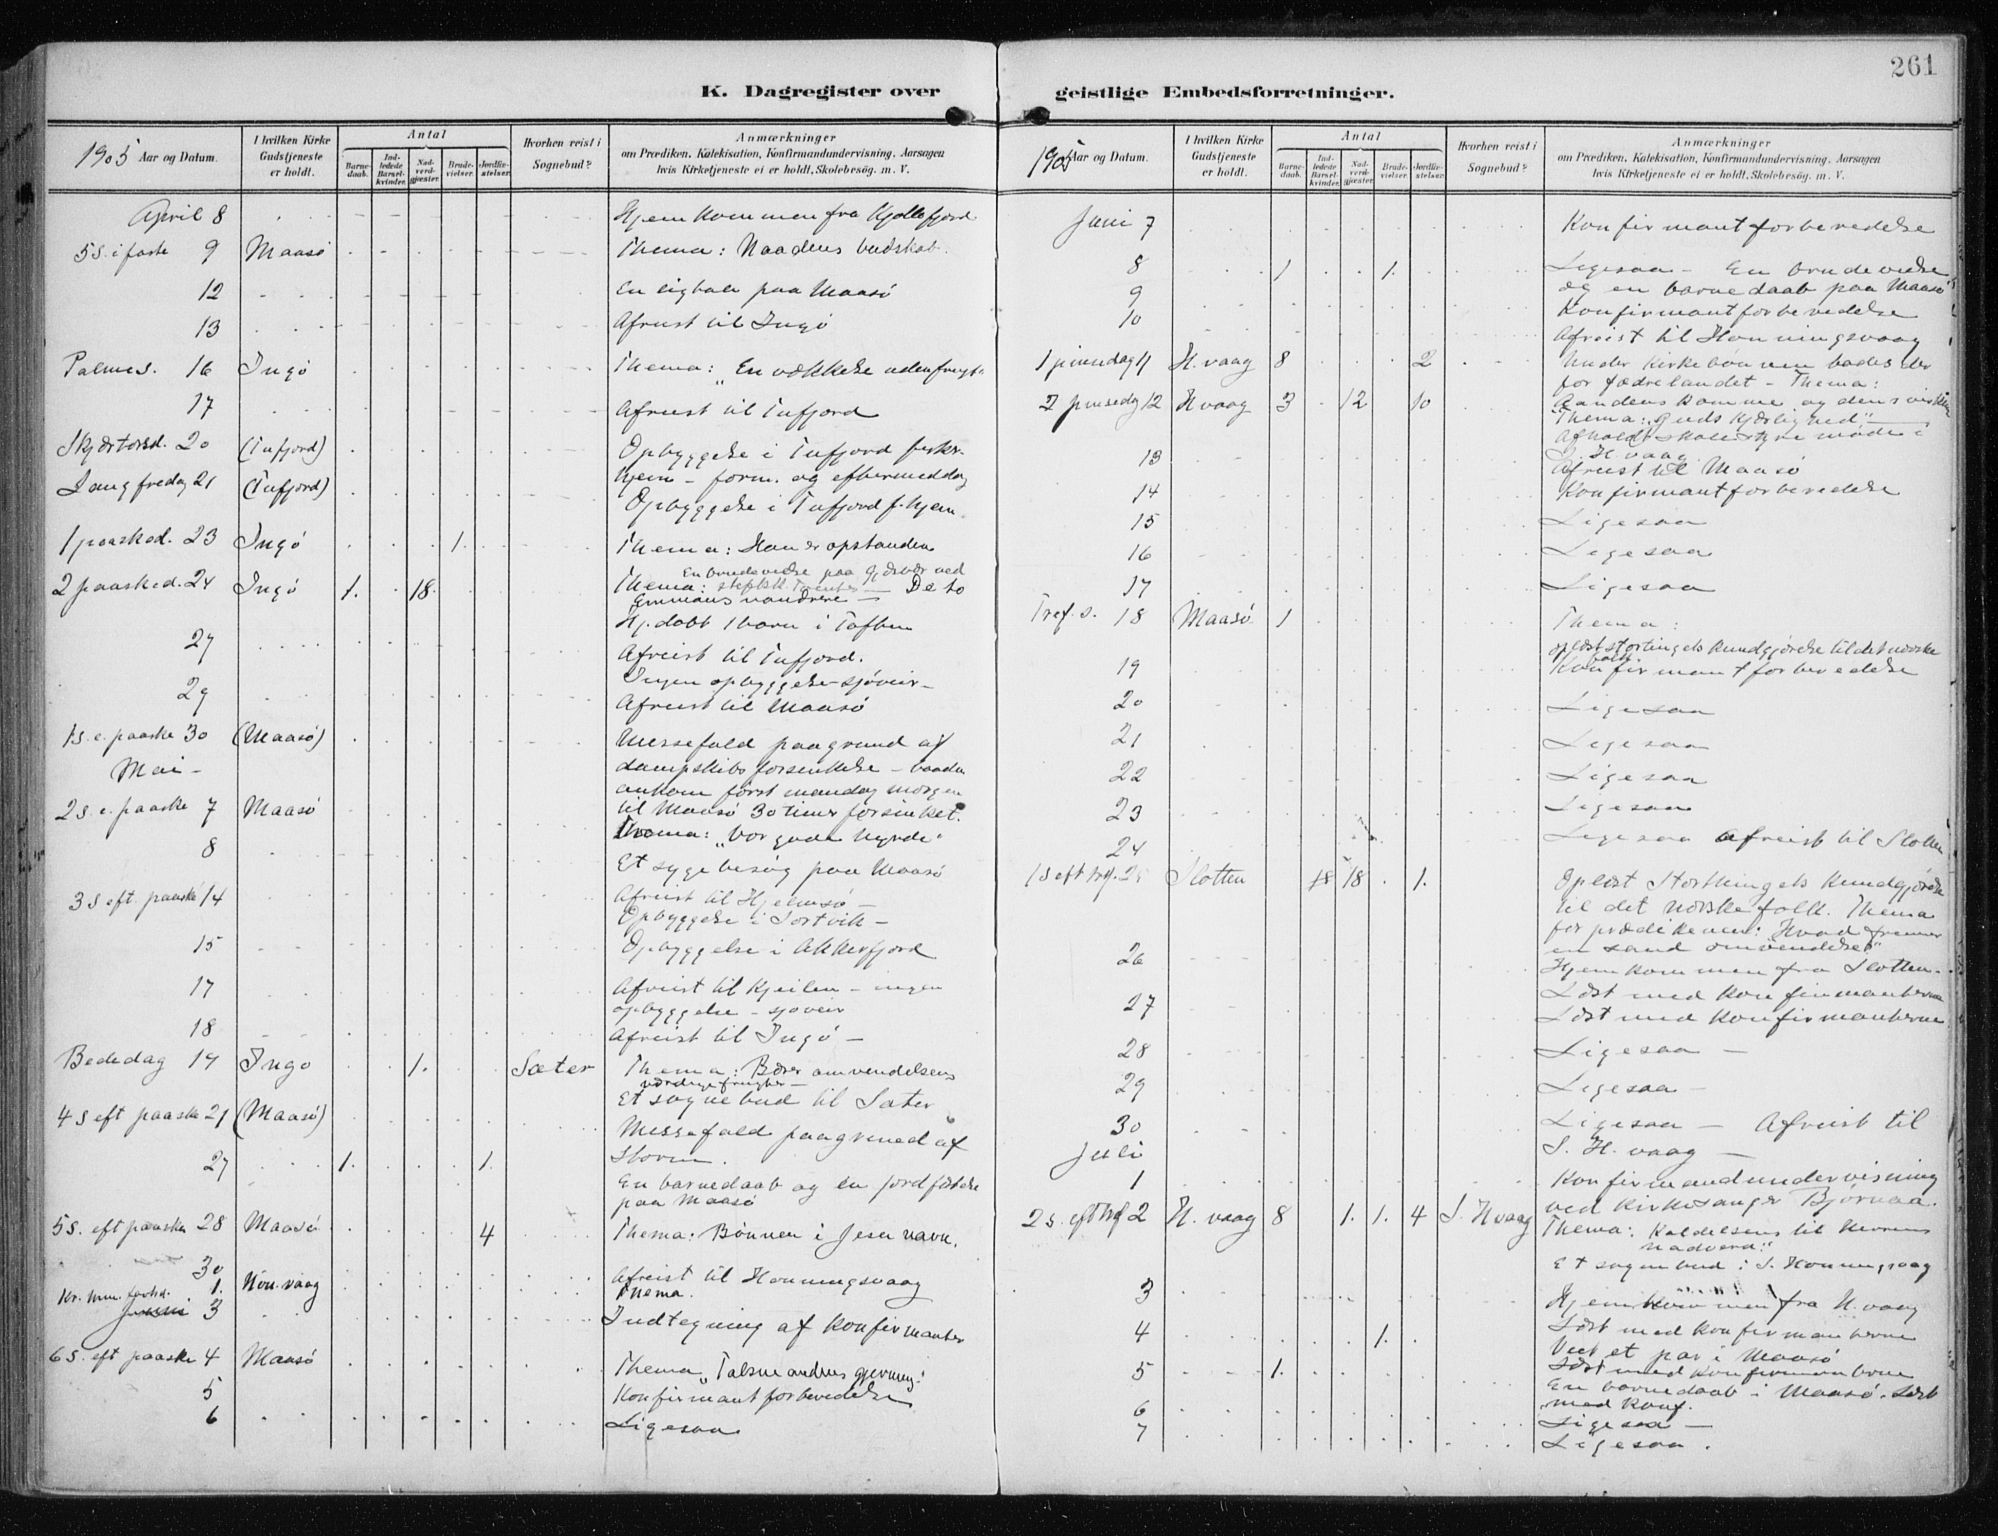 261
K. Dagregister over
geistlige Embedsforretninger.
1905 Aar og Datum.
I hvilken Kirke Gudstjeneste er holdt.
Antal
Barnedaab.
Indledede Barselkvinder.
Nadverdgjæster.
Brudevielser.
Jordfæstelser.
Hvorhen reist i Sognebud?
Anmærkninger
om Prædiken, Katekisation, Konfirmandundervisning, Aarsagen
hvis Kirketjeneste ei er holdt, Skolebesøg. m. V.
April 8 Hjemkommen fra Kjøllefjord
5 s. i faste 9 Maasø Thema: Naadens budskab.
12 En ligtale paa Maasø
13 Afreist til Ingø
Palmes. 16 Ingø Thema: „En vækkelse uden frugt“
17 Afreist til Tufjord
Skjærtorsd. 20 (Tufjord) Opbyggelse i Tufjord
Langfredag 21 (Tufjord) hjem – form. og eftermiddag
Opbyggelse i Tufjord f. hjem
1 paasked. 23 Ingø 1. Thema: Han er opstanden
En brudevielse paa Gjesvær ved
2 paasked. 24 Ingø 1. 18. Thema: De to
Emmaus vandrere –
Hj. døbt 1 barn i
27 Afreist til Tufjord.
Ingen opbyggelse – sjøveir –
29 Afreist til Maasø
1 s. e. paaske 30 (Maasø) Messefald paagrund af
Mai – dampskibsforsinkelse – baaden
ankom først mandag morgen
2 s. e. paaske 7 Maasø til Maasø 30 timer forsinket.
Thema: „Vor gode hyrde“
8 Et sygebesøg paa Maasø
3 s eft. paaske 14 Afreist til Hjelmsø –
Opbyggelse i Sortvik –
15 Opbyggelse i Akkerfjord
17 Afreist til Kjeilen – ingen
opbyggelse – sjøveir
18 Afreist til Ingø –
Bededag 19 Ingø 1. Sæter Thema: Bærer omvendelsens
værdige frugter –
Et sognebud til Sæter
4 s eft paaske 21 (Maasø) Messefald paagrund af
storm.
27 1. 1. En barnedaab og en jordfæstelse
paa Maasø
5 s. eft paaske 28 Maasø 4 Thema: Bønnen i Jesu navn.
30 Afreist til Honningsvaag
Kr. him. 1. Hon. vaag Thema.
Juni 3 Indtegning af konfirmanter
6 s. eft paaske 4 Maasø Thema „Talsmandens gjerning“
5 Konfirmantforberedelse
6 Ligesaa
1905 Aar og Datum.
I hvilken Kirke Gudstjeneste er holdt.
Antal
Barnedaab.
Indledede Barselkvinder.
Nadverdgjæster.
Brudevielser.
Jordfæstelser.
Hvorhen reist i Sognebud?
Anmærkninger
om Prædiken, Katekisation, Konfirmandundervisning, Aarsagen
hvis Kirketjeneste ei er holdt, Skolebesøg. m. V.
Juni 7 Konfirmantforberedelse
8 1 1. Ligesaa – En brudevielse
og en barnedaab paa Maasø
9 Konfirmantforberedelse
10 Afreist til Honningsvaag
1 pinsedag 11 H. vaag 8 2 Under kirkebønnen bades der
for fædrelandet – Thema:
2 pinsedag 12 H vaag 3 12 10 Aandens komme og dens
Thema: „Guds kjærlighed“
Afholdt skolestyremøde i
H. vaag
13 Afreist til Maasø
14 Konfirmantforberedelse
15 Ligesaa
16 Ligesaa
17 Ligesaa
Tref. s. 18 Maasø 1 Thema:
oplæst stortingets kundgjørelse til det norske
folk.
19 Konfirmantforberedelse
20 Ligesaa
21 Ligesaa
22 Ligesaa
23 Ligesaa
24 Ligesaa Afreist til Slotten
1 s eft tref. 25 Slotten 18 1. Oplæst Storthingets kundgjørelse
til det norske folk. Thema
for prædikenen: Hvad fremmer
en sand omvendelse“
26 Hjemkommen fra Slotten –
Læst med konfirmanterne
27 Læst med konfirmanterne
28 Ligesaa –
29 Ligesaa –
30 Ligesaa – Afreist til
Juli S. H. vaag –
1 Konfirmandundervisning
ved kirkesanger Bjørnaa.
2 s. eft tref 2 H. vaag 8 1. 1. 4 S. H vaag Thema: Kaldelsens til Herrens
nadverd.“
Et sognebud i S. Honningsvaag
3 Hjemkommen fra H. vaag
4 1. Læst med konfirmanterne
Viet et par i Maasø
5 1. Læst med konfirmanterne
En barnedaab i Maasø. Læst
med konf.
6 Ligesaa –
7 Ligesaa.